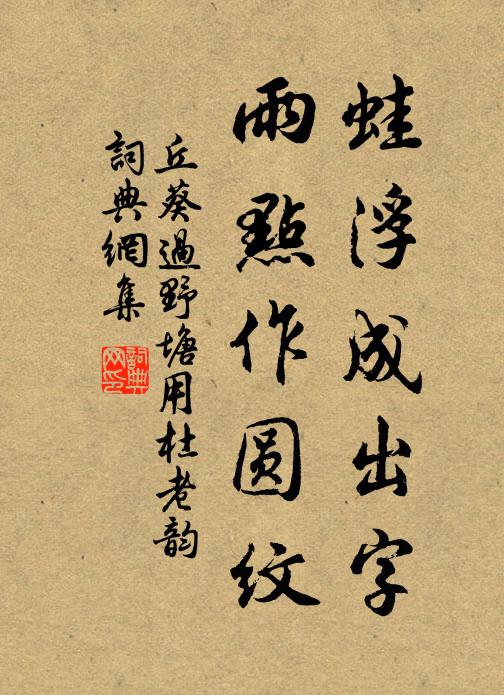 蛙浮成出字
雨點作圓紋
丘葵過野塘用杜老韵
詞典網集
詞典网印